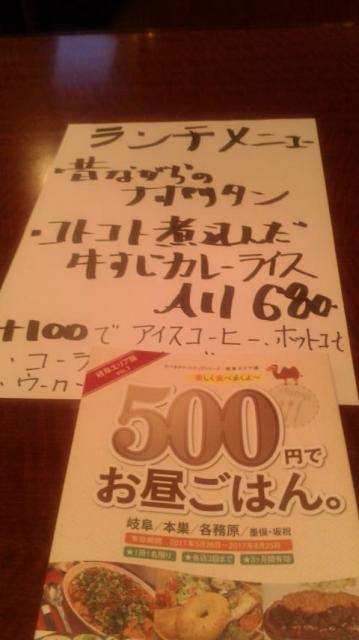 ランチメニュー
・昔ながらの
ナポリタン
・コトコト煮込んだ
牛すじカレーライス
All 680-
+100で アイスコーヒー、ホットコヒ
・コーラ
・ウーロン
岐阜エリア版
楽しく食べまくよ〜
500円で
お昼ごはん。
岐阜/本巣/各務原/墨俣・坂祝
有効期間 2017年5月26日〜2017年8月25日
★1冊1名限り ★各店3回まで ★3ヶ月間有効